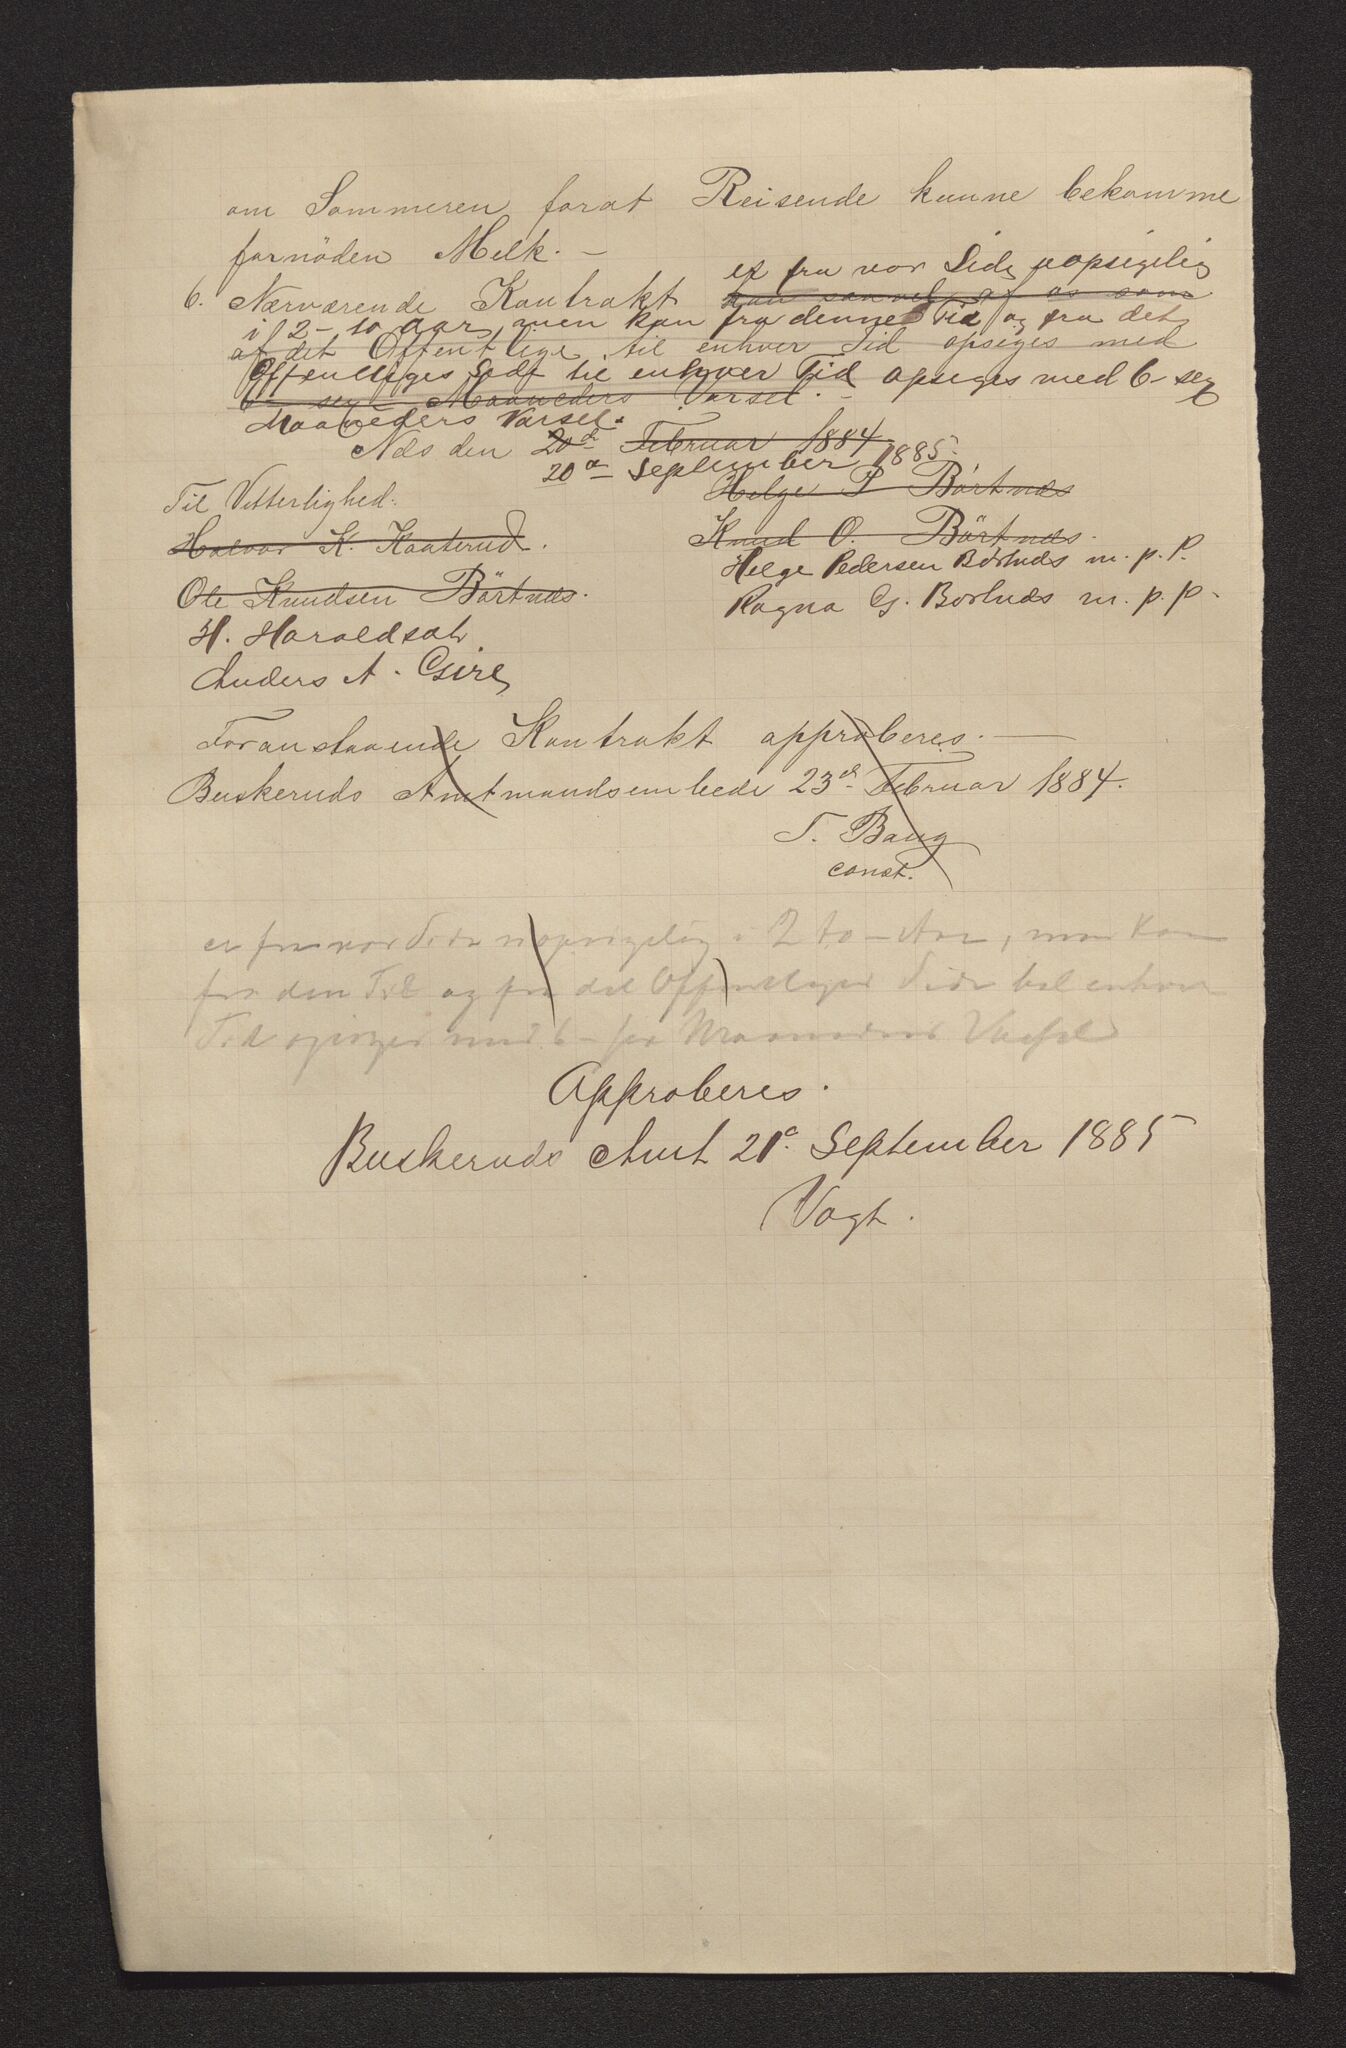 om Sommeren forat Reisende kunne bekomme
fornöden Melk. –
er fra vor Side uopsigelig
6. Nærværende Kontrakt kan saavel af os som
i 2 – to Aar, men kan fra denne Tid og fra det
af det Offentlige til enhver Tid opsiges med
Offentliges Side til enhver Tid opsiges med 6 – sex
6 – sex – Maaneders Varsel. –
Maaneders Varsel.
Næs den 20de Februar 1884
20de September 1885.
Til Vitterlighed:
Helge P Börtnæs
Halvor K. Kaaterud.
Knud O. Börtnæs.
Helge Pedersen Börtnæs m. p. P.
Ole Knudsen Börtnæs.
Ragna G. Börtnæs m. p. p.
H. Haroldsøt
Anders A. Gire
Foranstaaende Kontrakt approberes. –
Buskeruds Amtmandsembede 23de Februar 1884.
T. Baug
const.
er fra vor Side uopsigelig i 2 to – Aar, men kan
fra den Tid og fra det Offentliges Side til enhver
Tid opsiges med 6 – sex Maaneders Varsel
Approberes.
Buskeruds Amt 21de September 1885
Vogt.